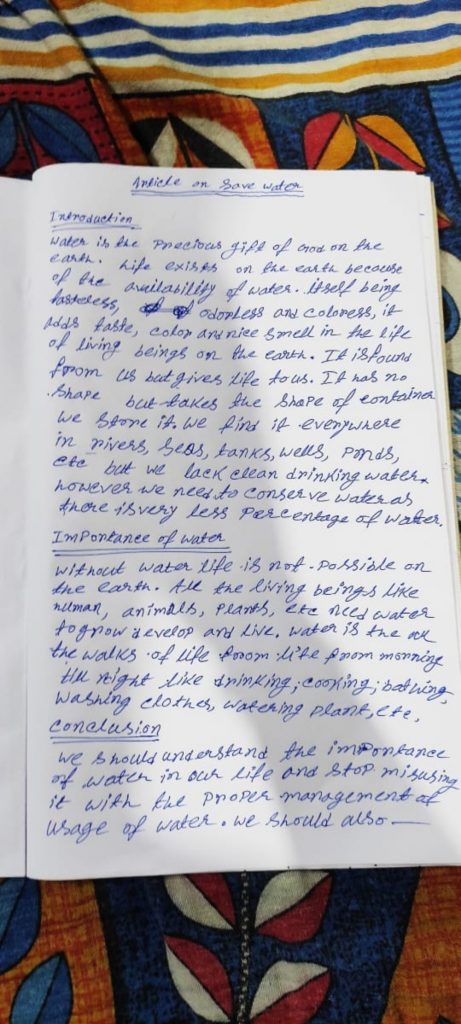 Article on Save water
Introduction
Water is the Precious gift of God on the
earth. Life exists on the earth because
of the availability of water. Itself being
tasteless, odorless and coloress, it
adds taste, color and nice smell in the life
of living beings on the earth. It is found
from us but gives life to us. It has no
shape but takes the shape of container
we store it. We find it everywhere
in rivers, Seas, tanks, wells, Ponds,
etc but we lack clean drinking water.
however we need to conserve water as
there is very less Percentage of water.
ImPortance of water
Without water life is not Possible on
the earth. All the living beings like
human, animals, Plants, etc need water
to grow develop and live. water is the
the walks of life from life from morning
till night like drinking, cooking, bathing,
washing clothes, watering plant, etc,
Conclusion
We should understand the imPortance
of water in our life and stoP misusing
it with the ProPer management of
usage of water. We should also —